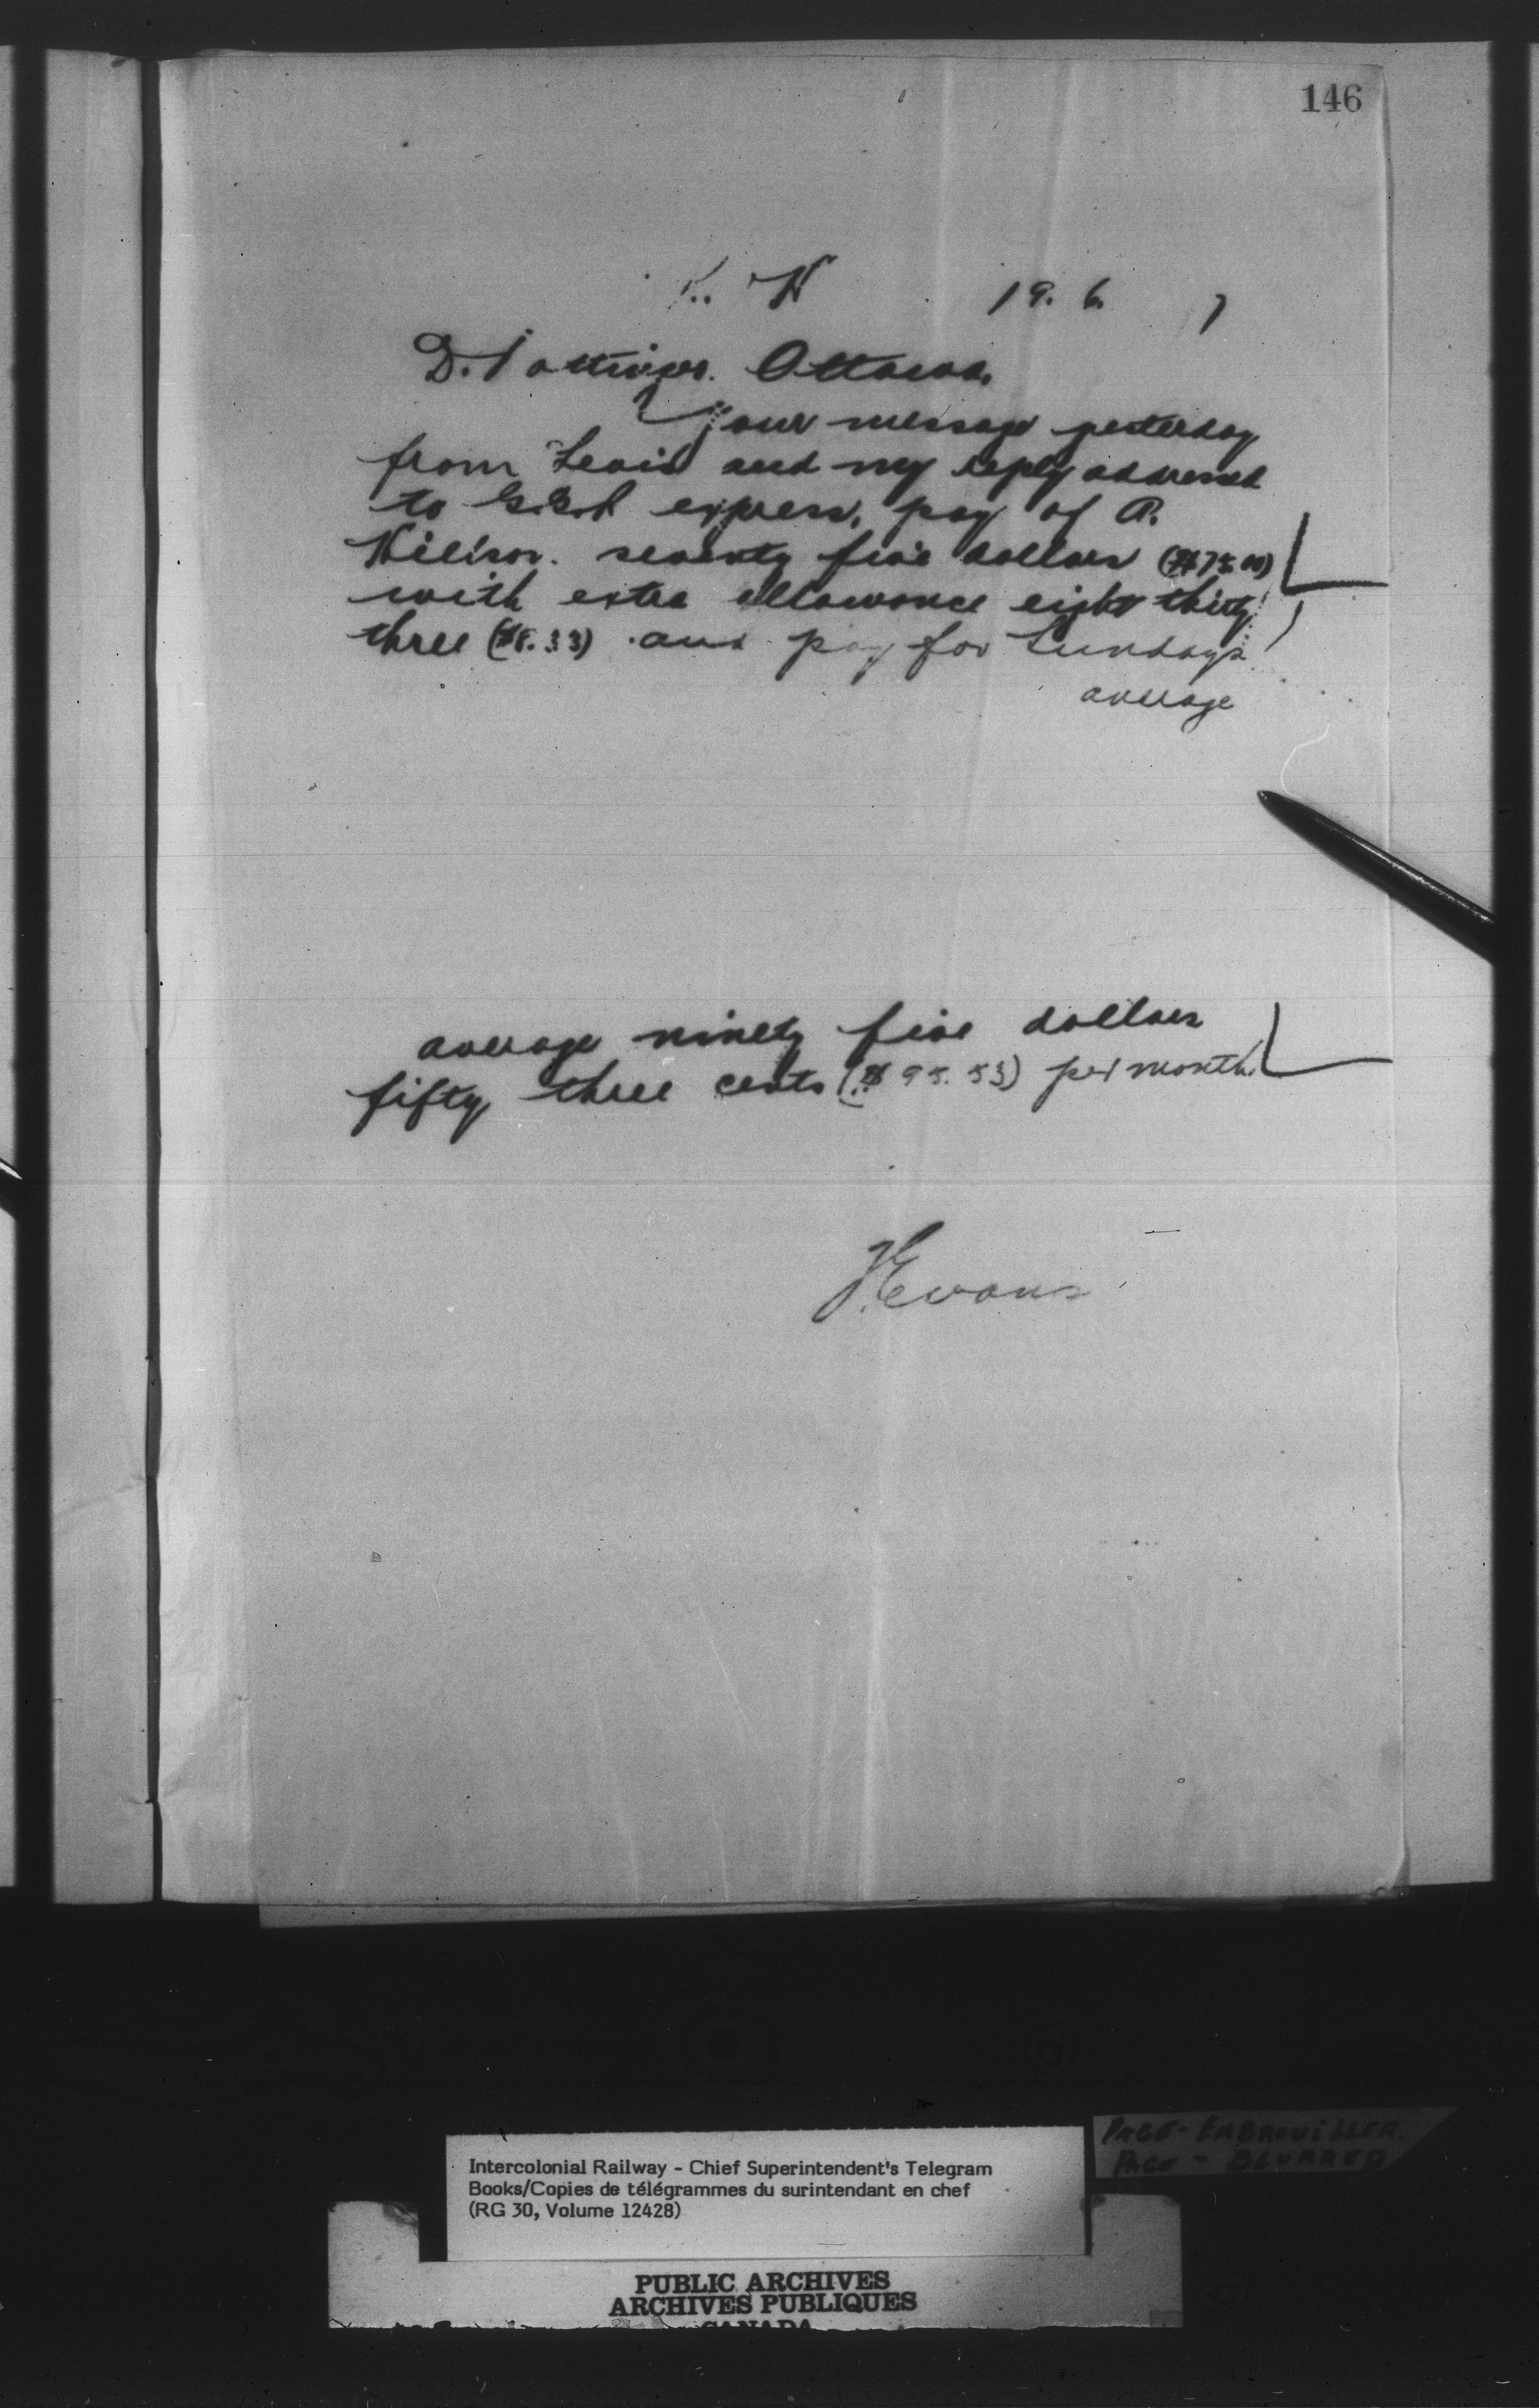 146
K. W 19. 6. 7
D. Pottinger. Ottawa.
Your message yesterday
from Levis and my reply addressed
to express, pay of A.
Wilson. seventy five dollars ($75.00)
with extra allowance eight thirty
three ($8.33) and pay for Sundays
average
average ninety five dollars
fifty three cents ($95.53) per month.
J. Evans
PAGE - EMBROUILLER.
PAGE - BLURRED
Intercolonial Railway - Chief Superintendent's Telegram
Books/Copies de télégrammes du surintendant en chef
(RG 30, Volume 12428)
PUBLIC ARCHIVES
ARCHIVES PUBLIQUES
CANADA